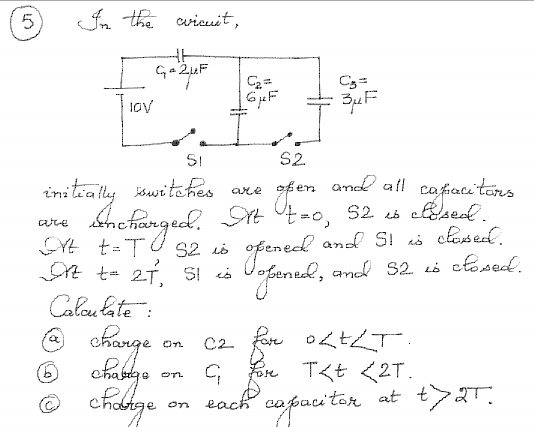 5 In the circuit,
C1=2μF
C2=
6μF
C3=
3μF
10V
S1
S2
initially switches are open and all capacitors
are uncharged. At t=0, S2 is closed.
At t=T, S2 is opened and S1 is closed.
At t= 2T, S1 is opened, and S2 is closed.
Calculate :
(a) charge on C2 for 0<t<T.
(b) charge on C1 for T<t<2T.
(c) charge on each capacitor at t>2T.